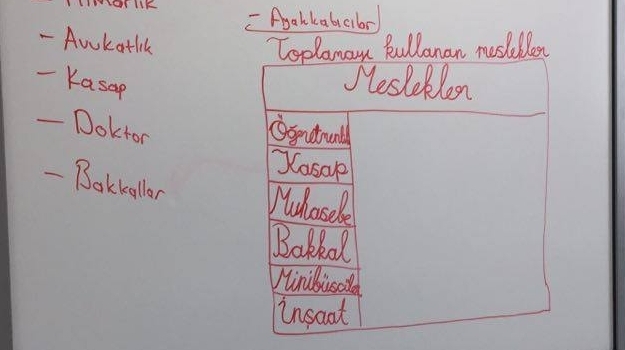 Mimarlık
- Avukatlık
- Kasap
- Doktor
- Bakkallar
- Ayakkabıcılar
Toplamayı kullanan meslekler
Meslekler
Öğretmenlik
Kasap
Muhasebe
Bakkal
Minibüsciler
İnşaat